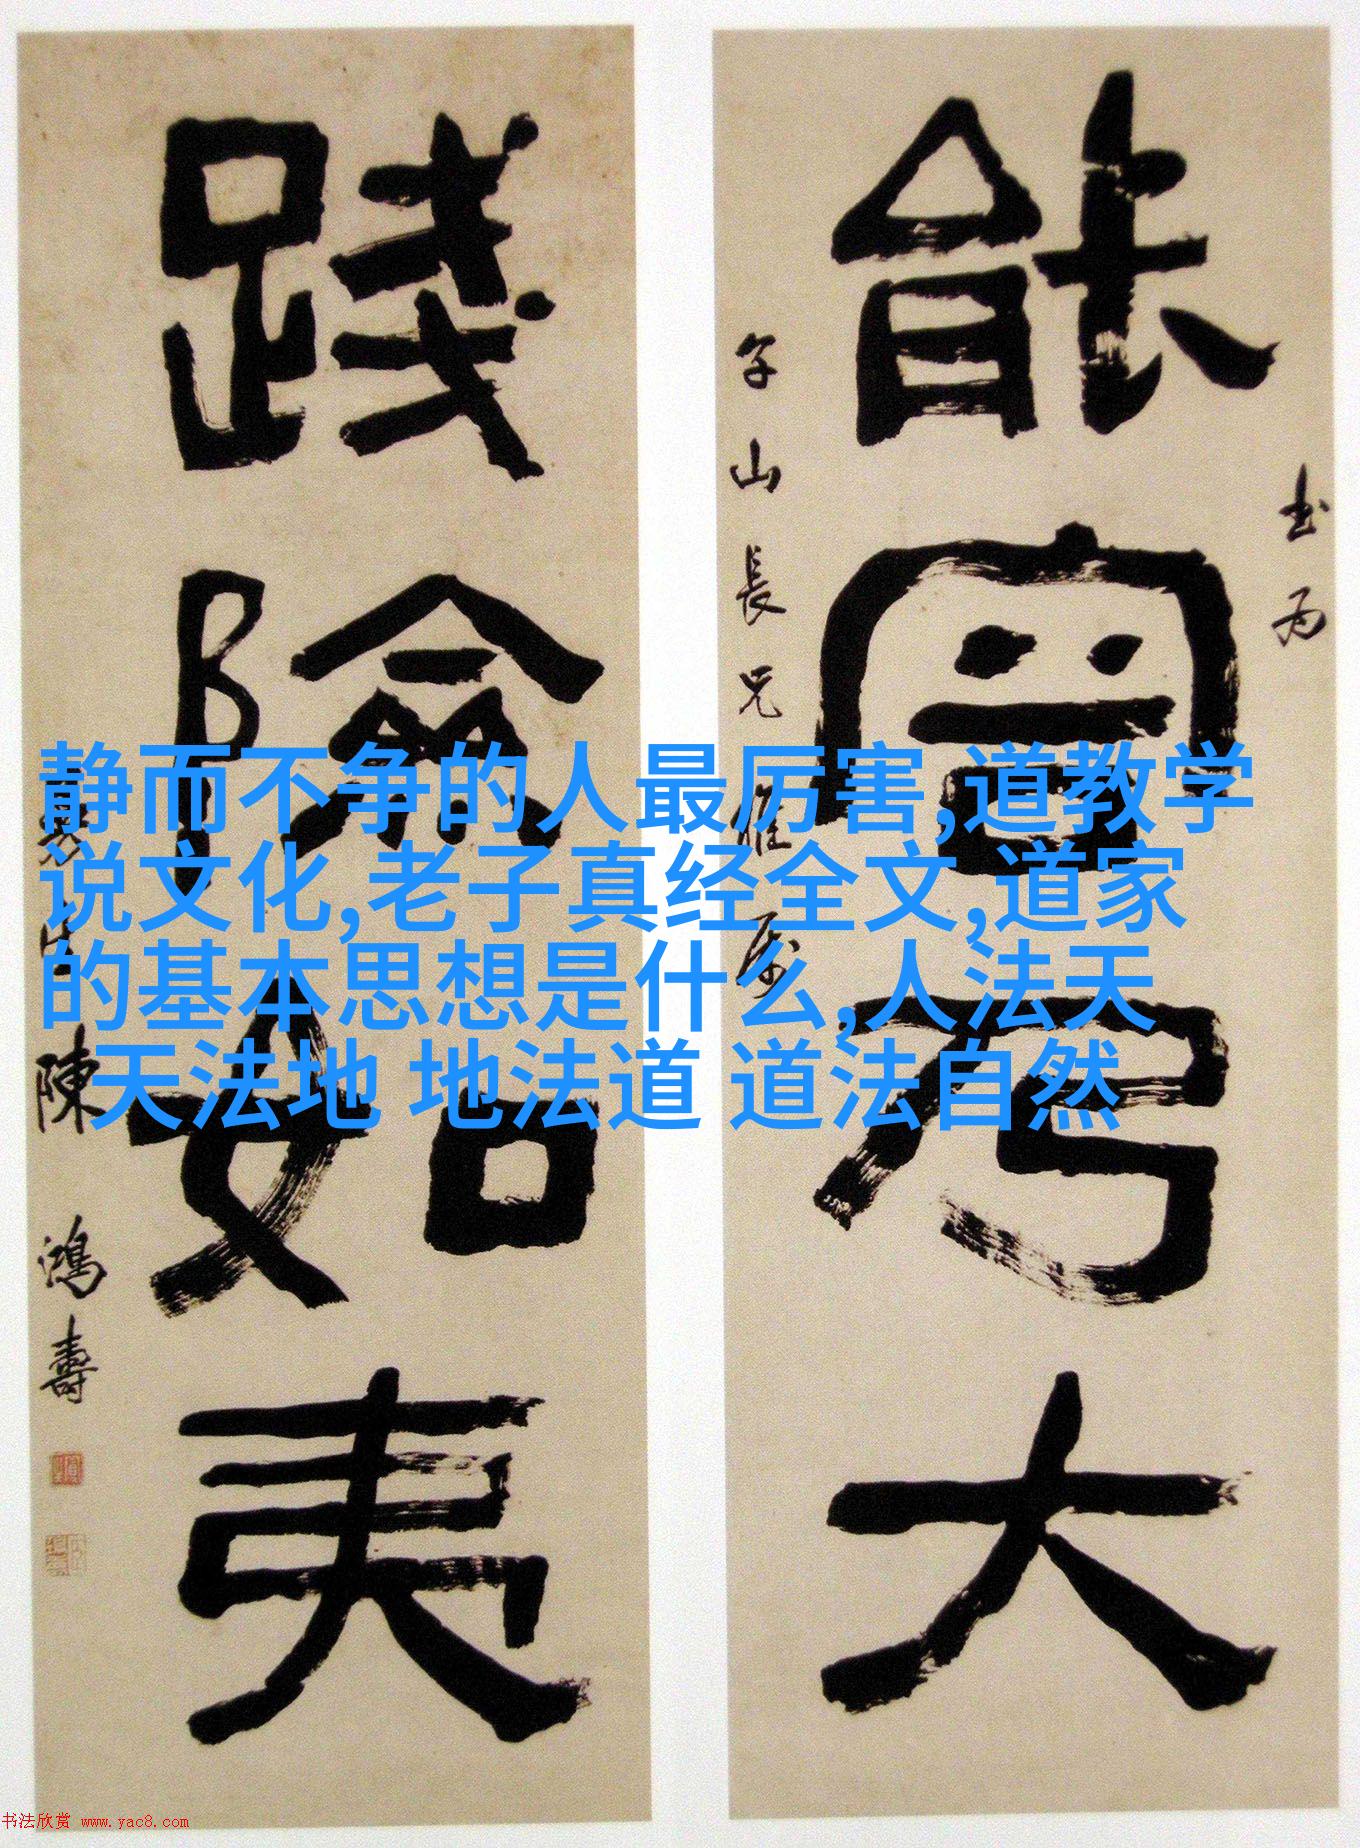 静而不争的人最厉害,道教学
说文化,老子真经全文,道家
的基本思想是什么,人法天
天法地 地法道 道法自然
乃大
踐險如夷
子山長兄雅属
陳鴻壽
书法欣赏 www.yac8.com